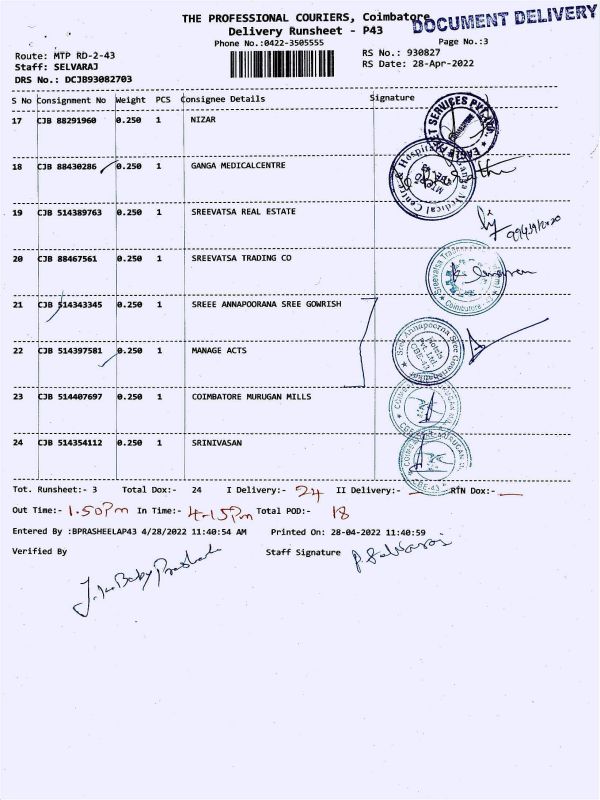 THE PROFESSIONAL COURIERS, Coimbatore
DOCUMENT DELIVERY
Delivery Runsheet - P43
Phone No.:0422-3505555
Page No.:3
Route: MTP RD-2-43
RS No.: 930827
Staff: SELVARAJ
RS Date: 28-Apr-2022
DRS No.: DCJB93082703
S No Consignment No Weight PCS Consignee Details Signature
17 CJB 88291960 0.250 1 NIZAR
18 CJB 88430286 0.250 1 GANGA MEDICALCENTRE
19 CJB 514389763 0.250 1 SREEVATSA REAL ESTATE
20 CJB 88467561 0.250 1 SREEVATSA TRADING CO
21 CJB 514343345 0.250 1 SREEE ANNAPOORANA SREE GOWRISH
22 CJB 514397581 0.250 1 MANAGE ACTS
23 CJB 514407697 0.250 1 COIMBATORE MURUGAN MILLS
24 CJB 514354112 0.250 1 SRINIVASAN
Tot. Runsheet:- 3 Total Dox:- 24 I Delivery:- 24 II Delivery:- — RTN Dox:- —
Out Time:- 1.50Pm In Time:- 4-15Pm Total POD:- 18
Entered By :BPRASHEELAP43 4/28/2022 11:40:54 AM Printed On: 28-04-2022 11:40:59
Verified By Staff Signature
P. Selvaraj